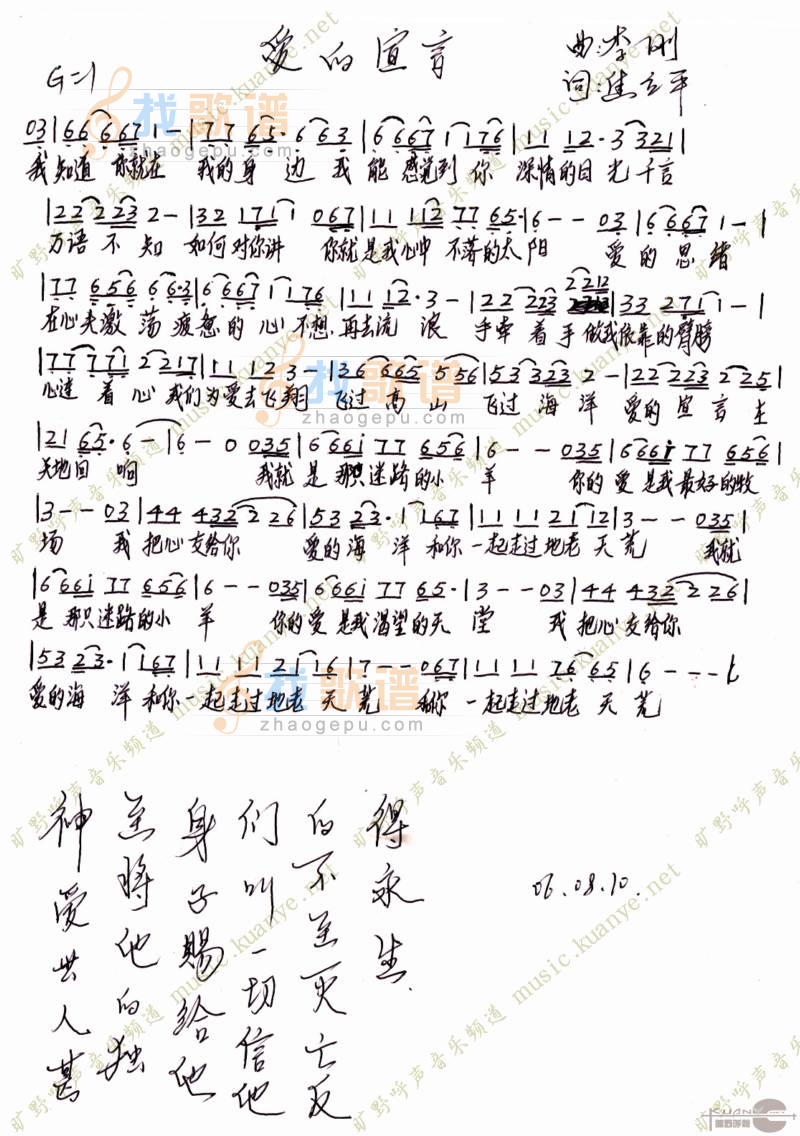 爱的宣言
曲:李刚
G=1
词:焦立平
03|66 6667 1-|77 65· 6 63|6667 1 176|11 12·3 321|
我知道 你就在 我的身边 我能感觉到你 深情的目光千言
|22 223 2-|32 171 1 067|11 112 77 65·|6-- 03|6667 1-|
万语不知如何对你讲 你就是我心中不落的太阳 爱的思绪
|77 656 6 6·3|6667 1 176|11 12·3-|22 223 2212|33 271 1-|
在心头激荡疲惫的心不想再去流浪 手牵着手做我依靠的臂膀
|77 771 2 217|11 12 3-|36 6665 556|53 323 2-|22 223 2 225|
心连着心我们为爱去飞翔 飞过高山 飞过海洋 爱的宣言在
|21 65·6-|6-0 035|6661 77 656|6-- 035|6661 77 656|
天地回响 我就是那只迷路的小羊 你的爱是我最好的牧
|3-- 03|44 432 2 26|53 23·1 167|11 11 2112|3-- 035|
场 我把心交给你 爱的海洋和你一起走过地老天荒 我就
|6661 77 656|6-- 035|6661 77 65·|3-- 03|44 432 2 26|
是那只迷路的小羊 你的爱是我渴望的天堂 我把心交给你
|53 23·1 167|11 11 21 16|7-- 067|11 11 76 65|6---|
爱的海洋和你一起走过地老天荒 和你一起走过地老天荒
神爱世人甚
至将他的独
身子赐给他
们叫一切信他
的不至灭亡反
得永生.
06.08.10.
找歌谱
zhaogepu.com
旷野呼声音乐频道 music.kuanye.net
KUANYE
旷野呼声